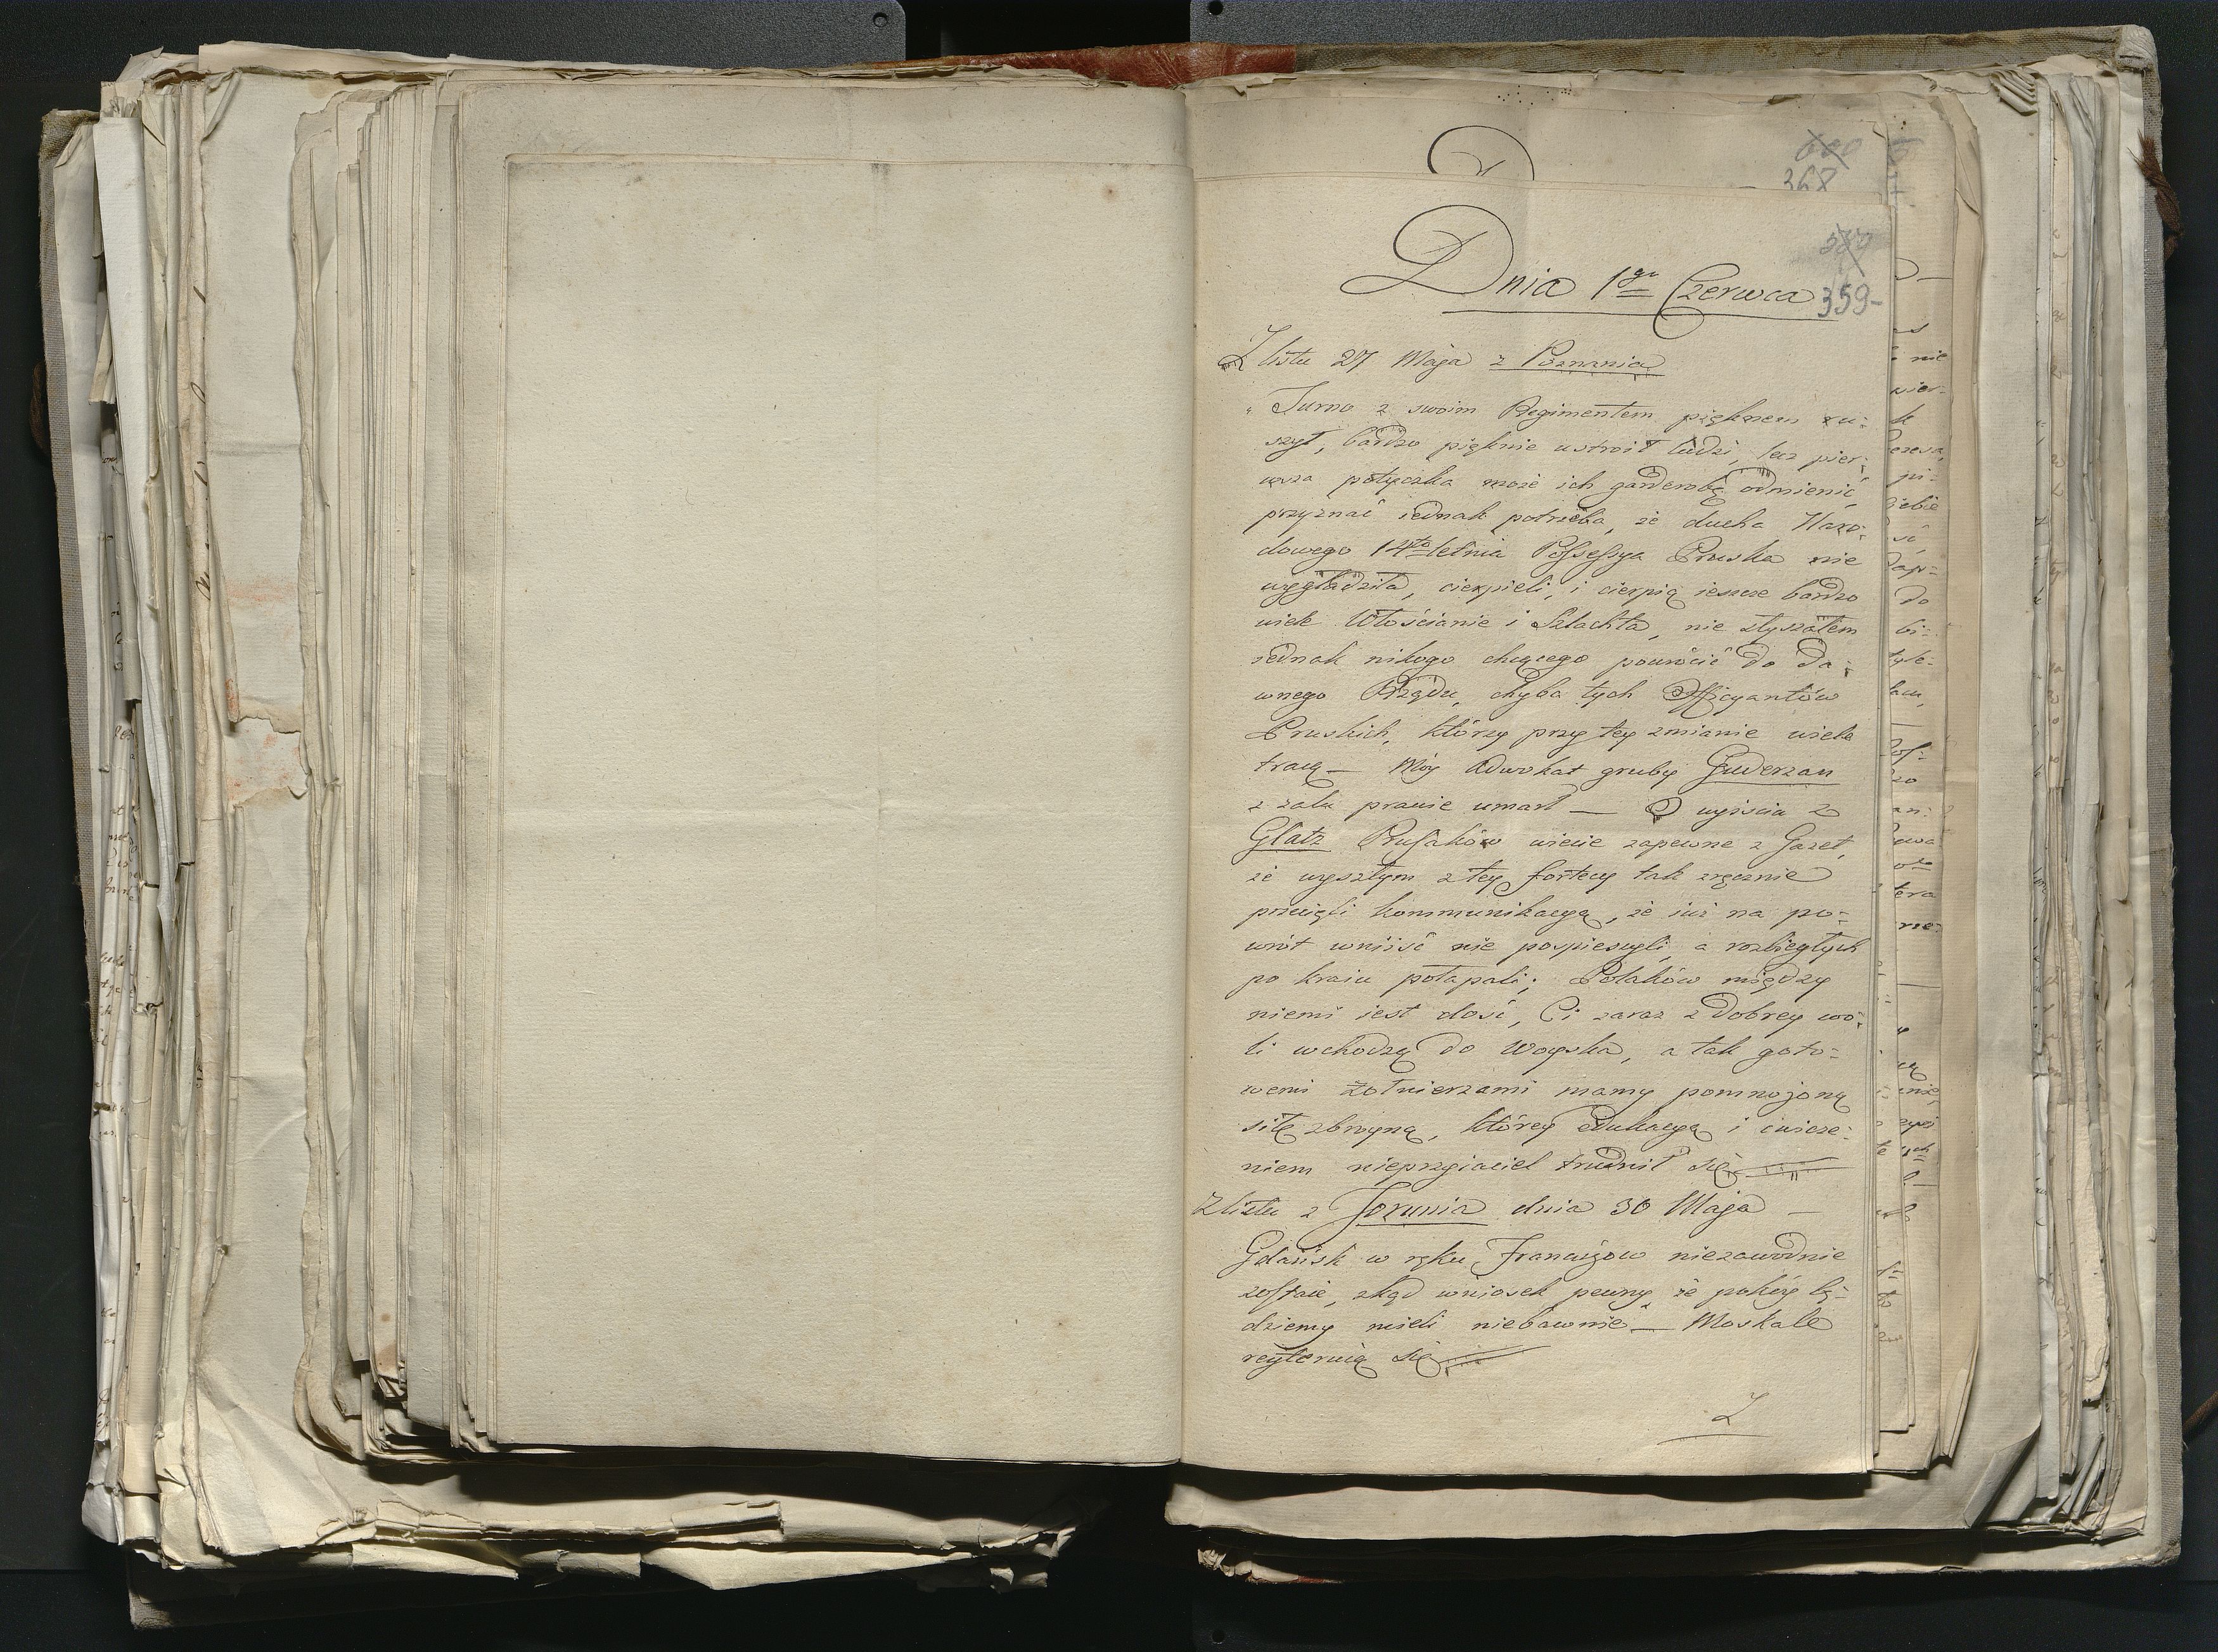 600
368
359-
Dnia 1go Czerwca
Z listu 27 Maja z Poznania
„Turno z swoim Regimentem pięknem ru=
szył, bardzo pięknie ustroił ludzi, lecz pier=
wsza potyczka może ich garderobę odmienić,
przyznać iednak potrzeba, że ducha Naro=
dowego 14to letnia Possessya Pruska nie
wygładziła, cierpieli, i cierpią ieszcze bardzo
wiele Włościanie i Szlachta, nie słyszałem
iednak nikogo chcącego powrócić do da=
wnego Rządu, chyba tych Officyantów
Pruskich, którzy przy tey zmianie wiele
tracą — Móy Adwokat gruby Guderzan
z żalu prawie umarł — O wyiściu z
Glatz Prusaków wiecie zapewne z Gazet,
że wyszłym z tey fortecy tak zręcznie
przecięli kommunikacyą, że iuż na po=
wrót wniiść nie pospieszyli, a rozbiegłych
po kraiu połapali; Polaków między
niemi iest dość, Ci zaraz z dobrey wo=
li wchodzą do Woyska, a tak goto=
wemi Żołnierzami mamy pomnożoną
siłę zbroyną, którey edukacyą i ćwicze=
niem nieprzyiaciel trudnił się
Z listu z Torunia dnia 30 Maja —
Gdańsk w ręku Francuzow niezawodnie
zostaie, zkąd wniosek pewny, że pokóy bę=
dziemy mieli niebawnie — Moskale
reyteruią się
Z